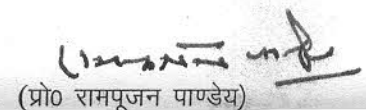 (प्रो0 रामपूजन पाण्डेय)